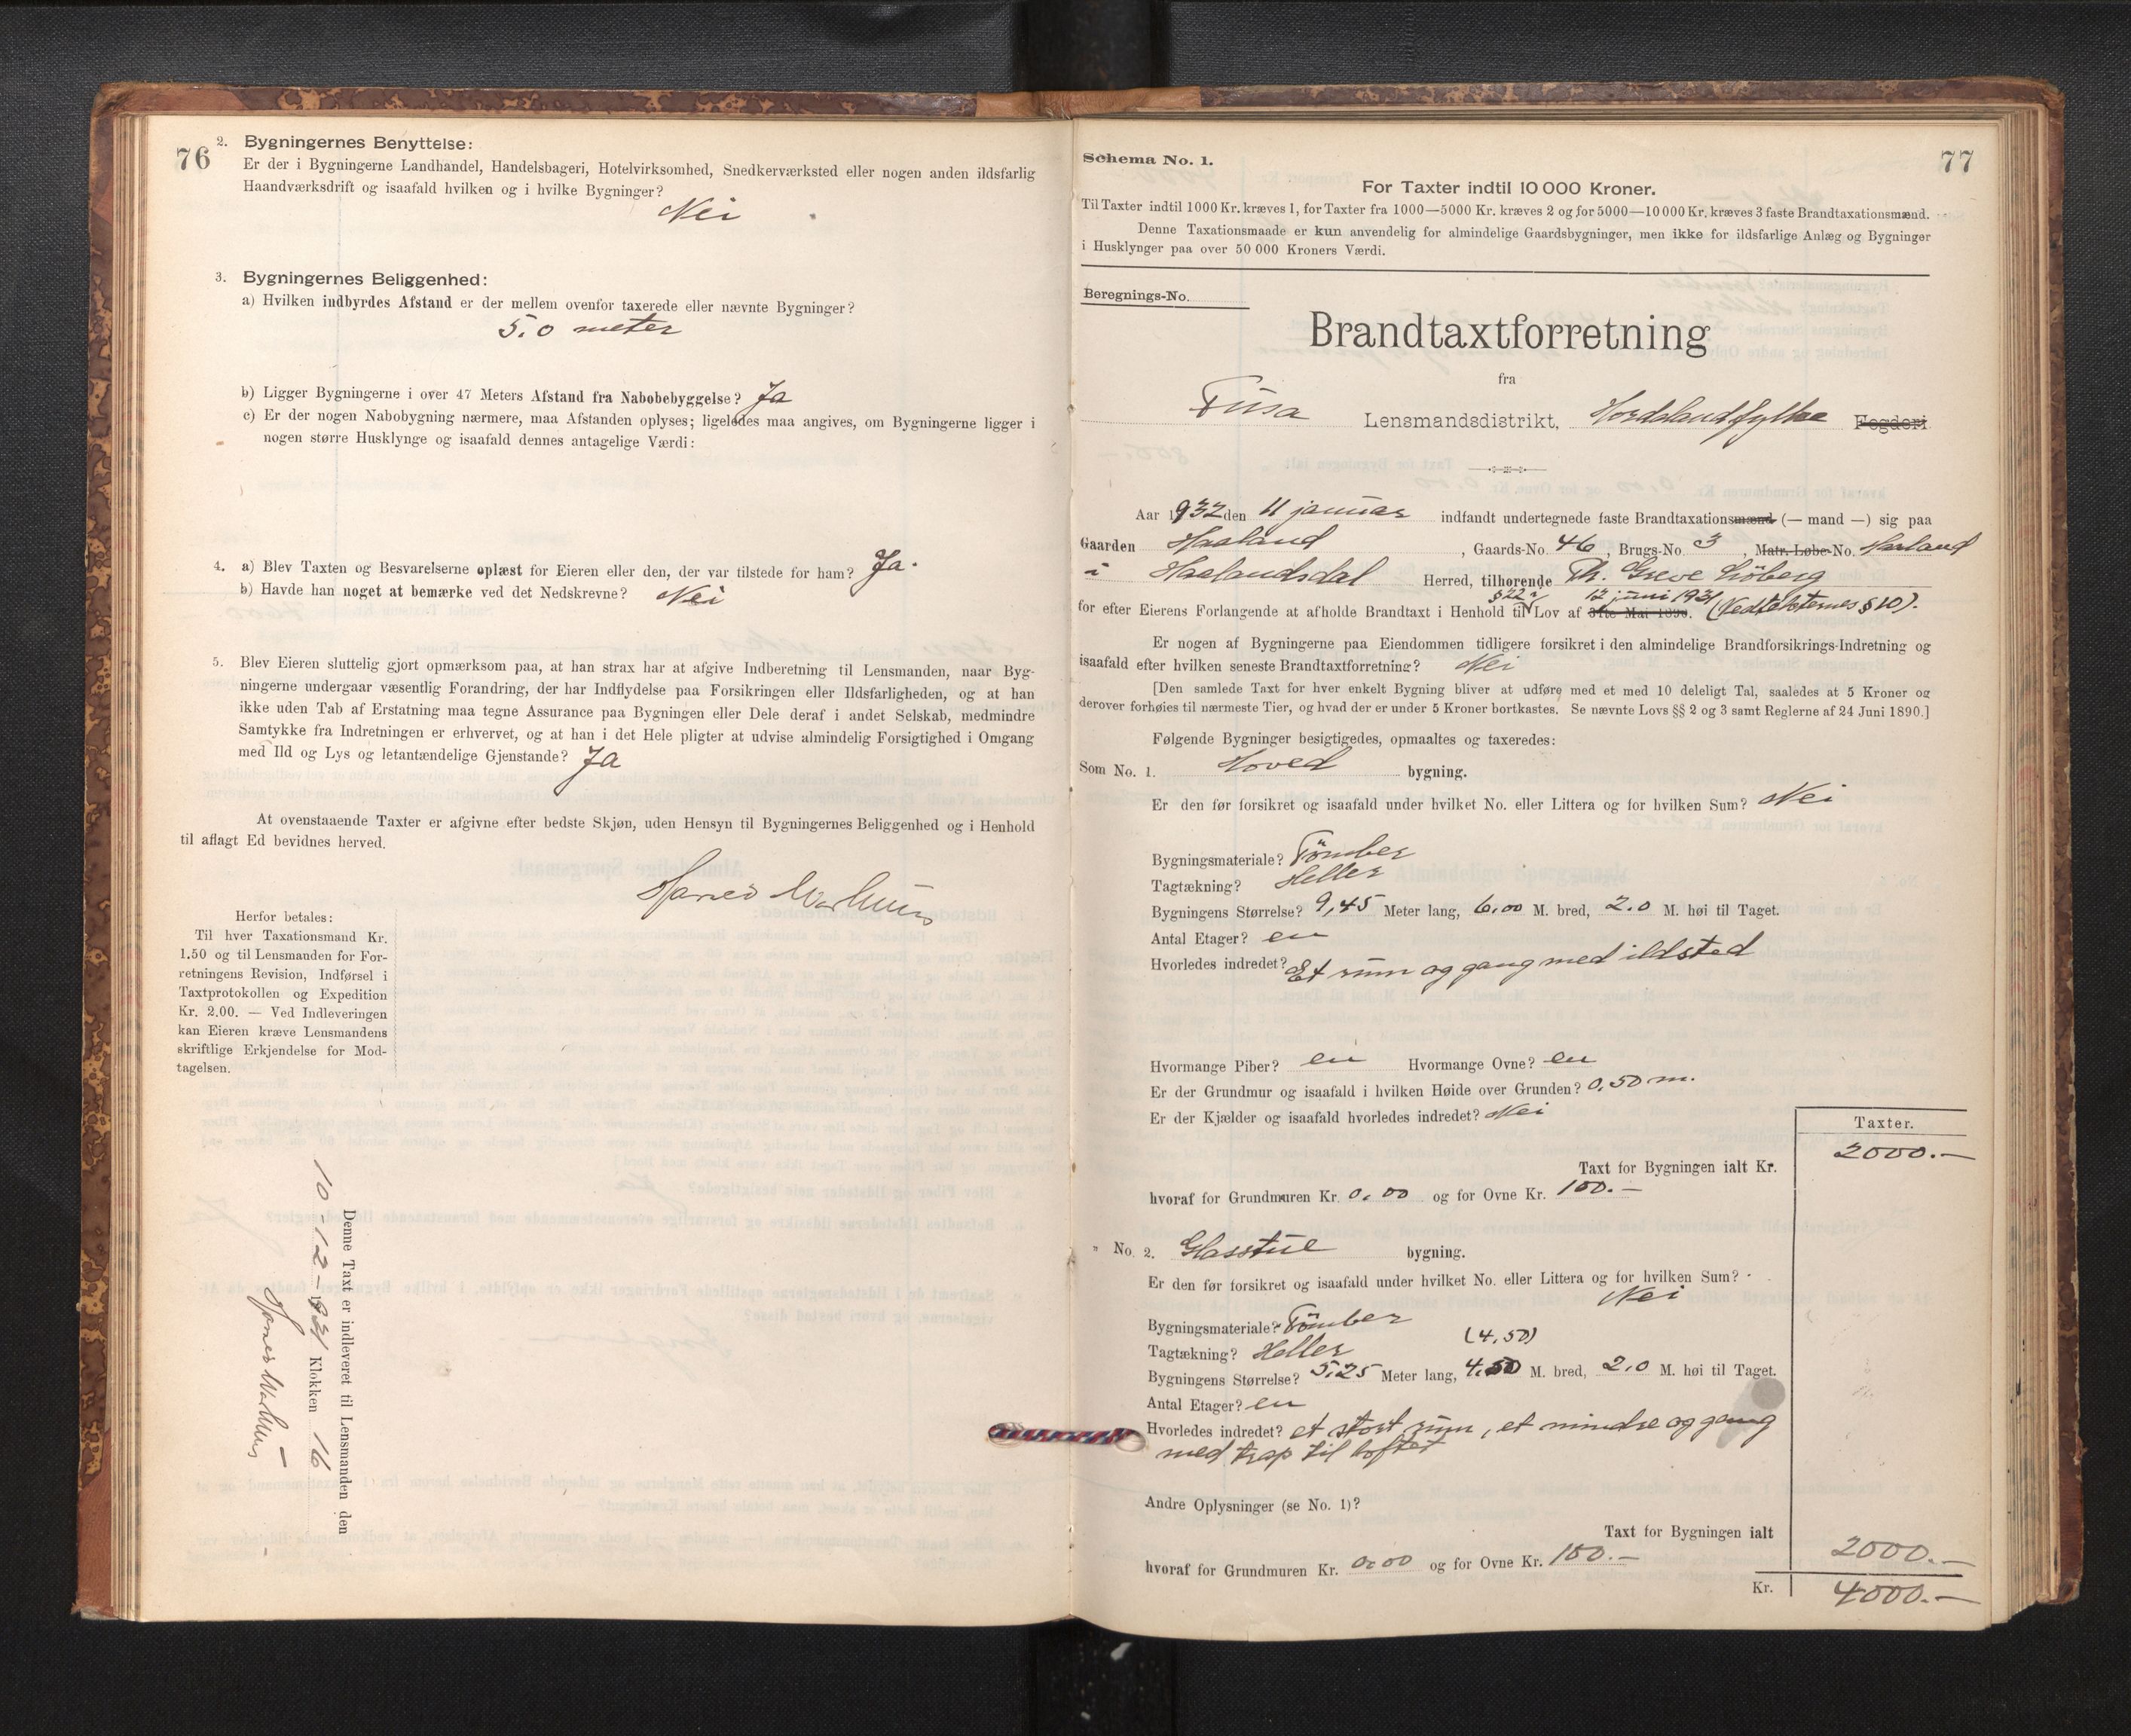 76
2. Bygningernes Benyttelse:
Er der i Bygningerne Landhandel, Handelsbageri, Hotelvirksomhed, Snedkerværksted eller nogen anden ildsfarlig
Haandværksdrift og isaafald hvilken og i hvilke Bygninger?
Nei
3. Bygningernes Beliggenhed:
a) Hvilken indbyrdes Afstand er der mellem ovenfor taxerede eller nævnte Bygninger?
5.0 meter
b) Ligger Bygningerne i over 47 Meters Afstand fra Nabobebyggelse? Ja
c) Er der nogen Nabobygning nærmere, maa Afstanden oplyses; ligeledes maa angives, om Bygningerne ligger i
nogen større Husklynge og isaafald dennes antagelige Værdi:
4. a) Blev Taxten og Besvarelserne oplæst for Eieren eller den, der var tilstede for ham? Ja.
b) Havde han noget at bemærke ved det Nedskrevne? Nei
5. Blev Eieren sluttelig gjort opmærksom paa, at han strax har at afgive Indberetning til Lensmanden, naar Byg-
ningerne undergaar væsentlig Forandring, der har Indflydelse paa Forsikringen eller Ildsfarligheden, og at han
ikke uden Tab af Erstatning maa tegne Assurance paa Bygningen eller Dele deraf i andet Selskab, medmindre
Samtykke fra Indretningen er erhvervet, og at han i det Hele pligter at udvise almindelig Forsigtighed i Omgang
med Ild og Lys og letantændelige Gjenstande? Ja
At ovenstaaende Taxter er afgivne efter bedste Skjøn, uden Hensyn til Bygningernes Beliggenhed og i Henhold
til aflagt Ed bevidnes herved.
Herfor betales:
Til hver Taxationsmand Kr.
1.50 og til Lensmanden for For-
retningens Revision, Indførsel i
Taxtprotokollen og Expedition
Kr. 2.00. — Ved Indleveringen
kan Eieren kræve Lensmandens
skriftlige Erkjendelse for Mod-
tagelsen.
Denne Taxt er indleveret til Lensmanden den
10-12-1931 Klokken 16
77
Schema No. 1.
For Taxter indtil 10 000 Kroner.
Til Taxter indtil 1000 Kr. kræves 1, for Taxter fra 1000—5000 Kr. kræves 2 og for 5000—10 000 Kr. kræves 3 faste Brandtaxationsmænd.
Denne Taxationsmaade er kun anvendelig for almindelige Gaardsbygninger, men ikke for ildsfarlige Anlæg og Bygninger
i Husklynger paa over 50 000 Kroners Værdi.
Beregnings-No.
Brandtaxtforretning
fra
Fusa Lensmandsdistrikt, Hordaland fylke Fogderi
Aar 1932 den 11 januar indfandt undertegnede faste Brandtaxationsmænd (— mand —) sig paa
Gaarden Haaland, Gaards-No. 46, Brugs-No. 3, Matr. Løbe-No. Haaland
i Haalandsdal Herred, tilhørende Th. Greve Löberg
§ 22 12 juni 1931
for efter Eierens Forlangende at afholde Brandtaxt i Henhold til Lov af 31te Mai 1890. (Vedtekternes § 10).
Er nogen af Bygningerne paa Eiendommen tidligere forsikret i den almindelige Brandforsikrings-Indretning og
isaafald efter hvilken seneste Brandtaxtforretning? Nei
[Den samlede Taxt for hver enkelt Bygning bliver at udføre med et med 10 deleligt Tal, saaledes at 5 Kroner og
derover forhøies til nærmeste Tier, og hvad der er under 5 Kroner bortkastes. Se nævnte Lovs §§ 2 og 3 samt Reglerne af 24 Juni 1890.]
Følgende Bygninger besigtigedes, opmaaltes og taxeredes:
Som No. 1. Hoved bygning.
Er den før forsikret og isaafald under hvilket No. eller Littera og for hvilken Sum? Nei
Bygningsmateriale? Tömber
Tagtækning? Heller
Bygningens Størrelse? 9,45 Meter lang, 6,00 M. bred, 2.0 M. høi til Taget.
Antal Etager? en
Hvorledes indredet? Et rum og gang med ildsted
Hvormange Piber? en Hvormange Ovne? en
Er der Grundmur og isaafald i hvilken Høide over Grunden? 0,50 m.
Er der Kjælder og isaafald hvorledes indredet? Nei
Taxter.
Taxt for Bygningen ialt Kr. 2000.—
hvoraf for Grundmuren Kr. 0.00 og for Ovne Kr. 100.—
" No. 2. Glasstue bygning.
Er den før forsikret og isaafald under hvilket No. eller Littera og for hvilken Sum?
Nei
Bygningsmateriale? Tömber
(4,50)
Tagtækning? Heller
Bygningens Størrelse? 5.25 Meter lang, 4.50 M. bred, 2.0 M. høi til Taget.
Antal Etager? en
Hvorledes indredet? et stort rum, et mindre og gang
med trap til loftet
Andre Oplysninger (se No. 1)?
Taxt for Bygningen ialt 2000.—
hvoraf for Grundmuren Kr. 0.00 og for Ovne Kr. 100.—
Kr. 4000.—